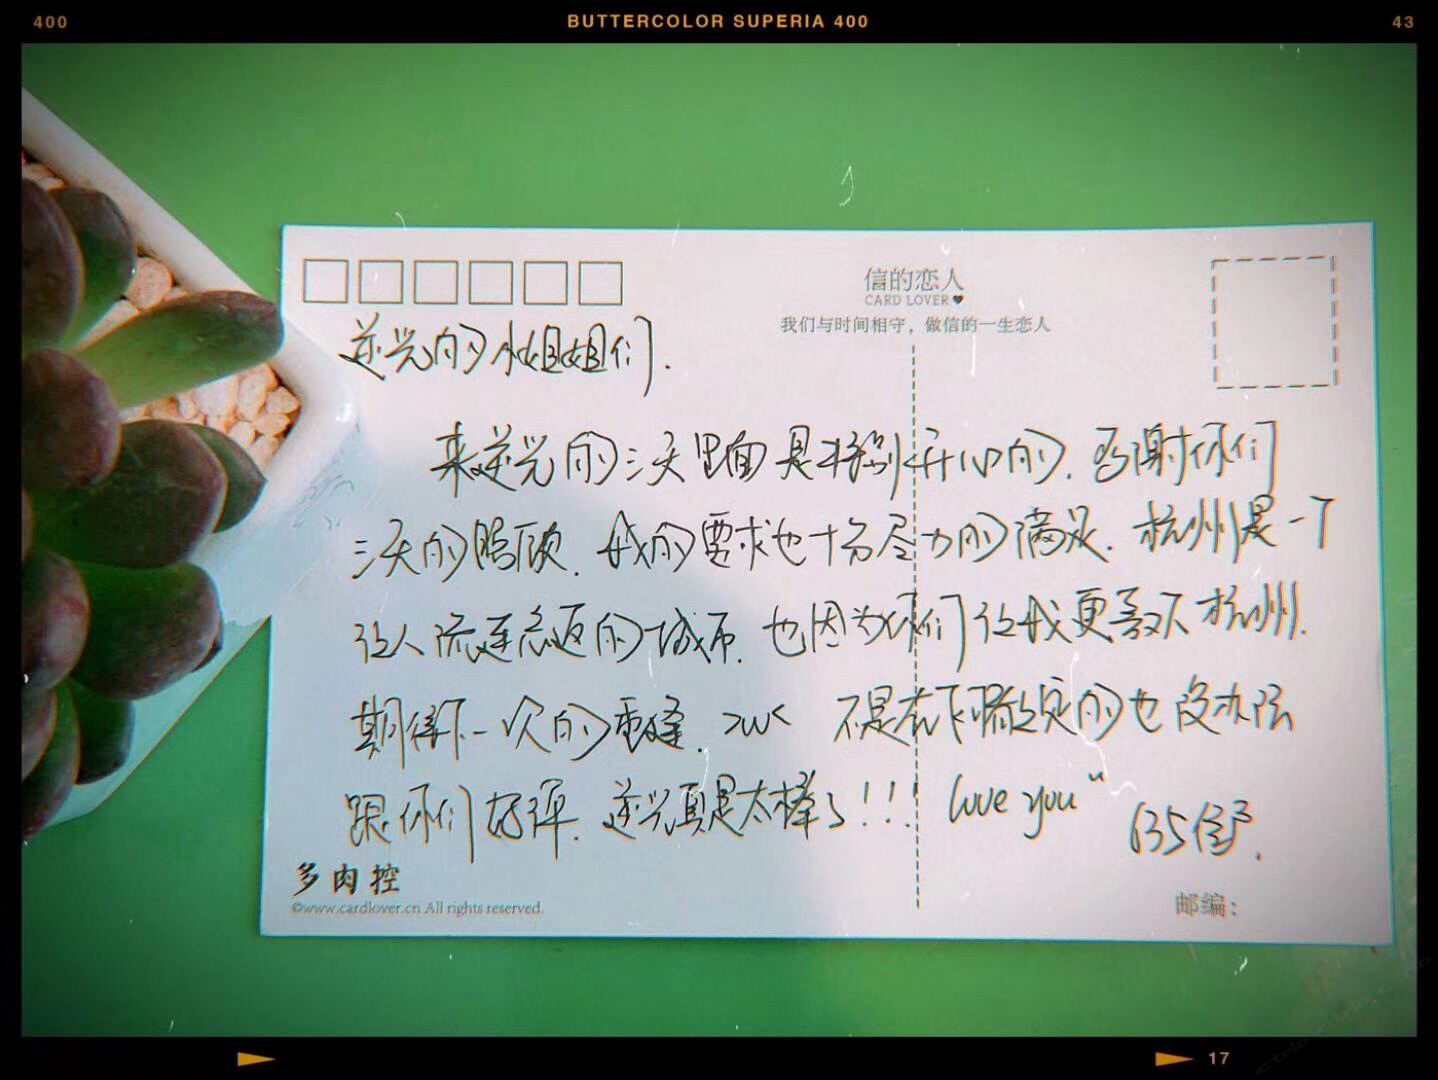 400
BUTTERCOLOR SUPERIA 400
43
信的恋人
CARD LOVER
我们与时间相守，做信的一生恋人
逆光的小姐姐们.
来逆光的三天里面是特别开心的. 感谢你们
三天的照顾. 我的要求也十分尽力的满足. 杭州是一个
让人流连忘返的城市. 也因为你们让我更喜欢杭州.
期待下一次的重逢. >w< 不是在飞猪定的也没办法
跟你们好评. 逆光真是太棒了!!! love you~
635住户.
多肉控
©www.cardlover.cn All rights reserved.
邮编：
17